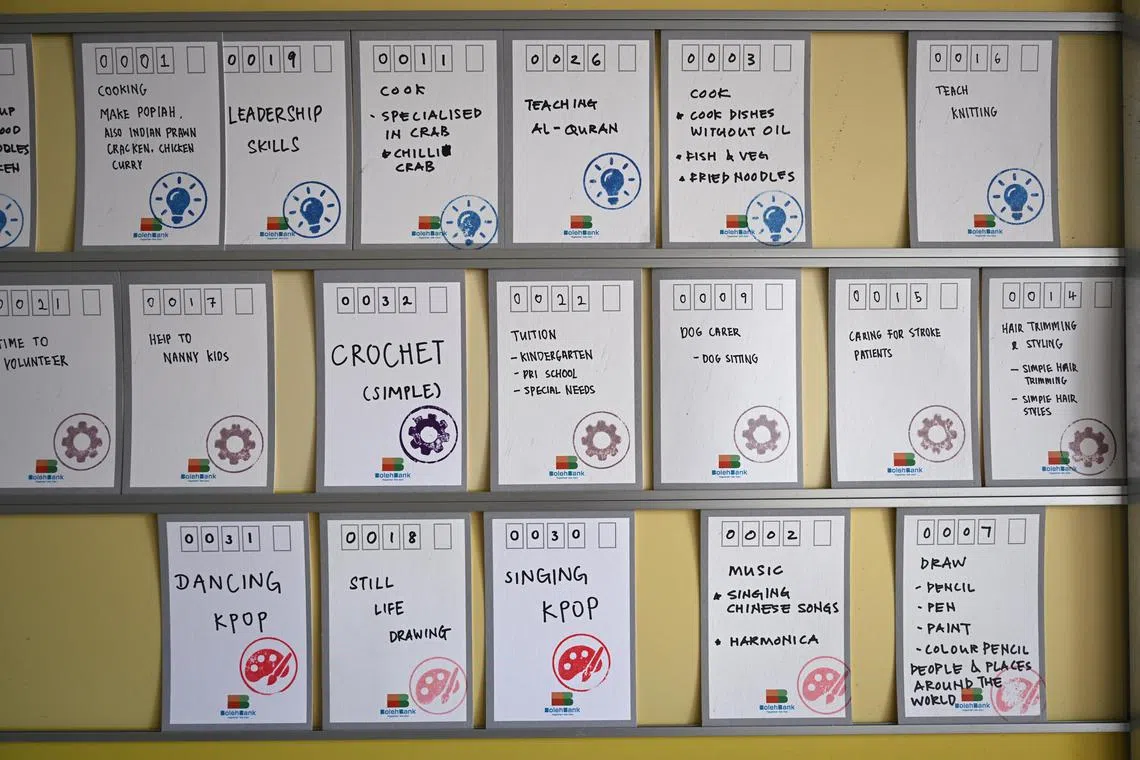 UP
OOD
ODLES
KEN
0001
COOKING
MAKE POPIAH,
ALSO INDIAN PRAWN
CRACKEN, CHICKEN
CURRY
BolehBank
0019
LEADERSHIP
SKILLS
BolehBank
0011
COOK
- SPECIALISED
IN CRAB
• CHILLI
CRAB
BolehBank
0026
TEACHING
AL-QURAN
BolehBank
0003
COOK
• COOK DISHES
WITHOUT OIL
• FISH & VEG
• FRIED NOODLES
BolehBank
0016
TEACH
KNITTING
BolehBank
021
TIME TO
VOLUNTEER
BolehBank
0017
HELP TO
NANNY KIDS
BolehBank
0032
CROCHET
(SIMPLE)
BolehBank
0022
TUITION
- KINDERGARTEN
- PRI SCHOOL
- SPECIAL NEEDS
BolehBank
0009
DOG CARER
- DOG SITTING
BolehBank
0015
CARING FOR STROKE
PATIENTS
BolehBank
0014
HAIR TRIMMING
& STYLING
- SIMPLE HAIR
TRIMMING
- SIMPLE HAIR
STYLES
BolehBank
0031
DANCING
KPOP
BolehBank
0018
STILL
LIFE
DRAWING
BolehBank
0030
SINGING
KPOP
BolehBank
0002
MUSIC
• SINGING
CHINESE SONGS
• HARMONICA
BolehBank
0007
DRAW
- PENCIL
- PEN
- PAINT
- COLOUR PENCIL
PEOPLE & PLACES
AROUND THE
WORLD
BolehBank